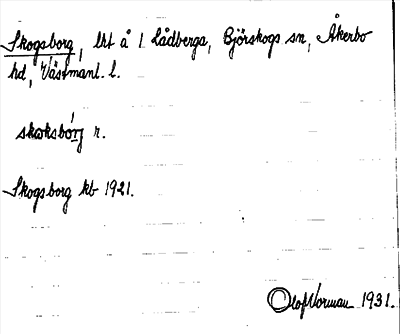 Skogsborg, lht å 1 Lådberga, Björskogs sn, Åkerbo
hd, Västmanl. l.
skoksbórj r.
Skogsborg kb 1921.
Olof Norman 1931.